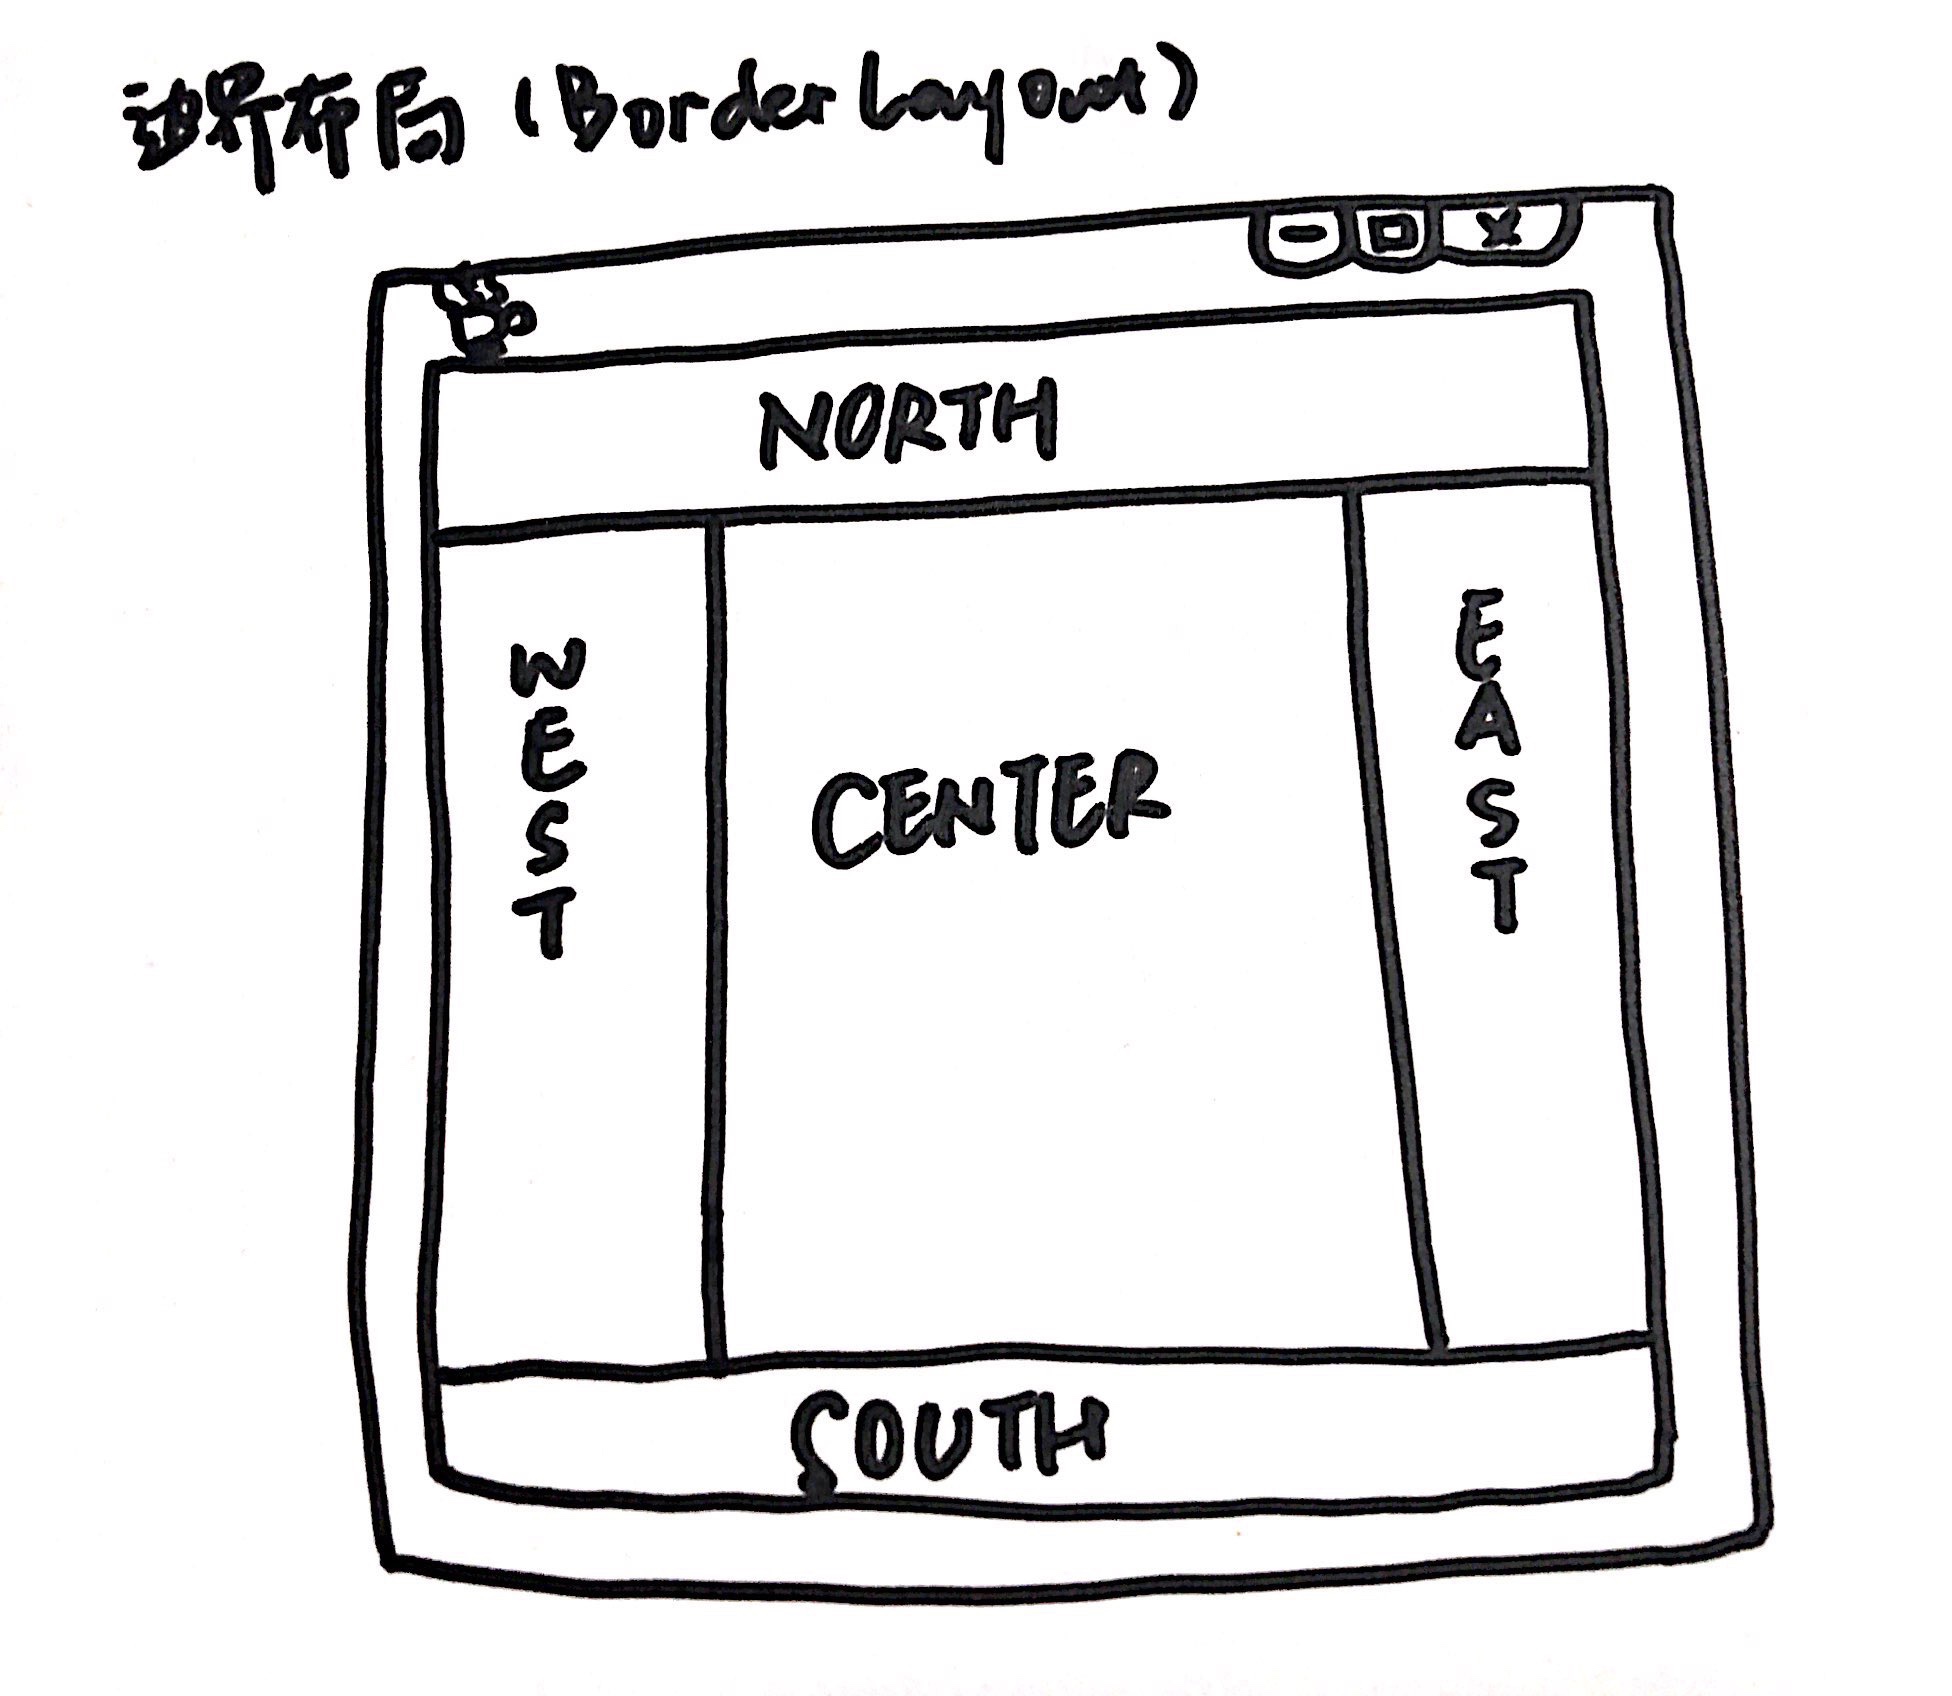 边界布局 (BorderLayout)
NORTH
WEST
CENTER
EAST
SOUTH